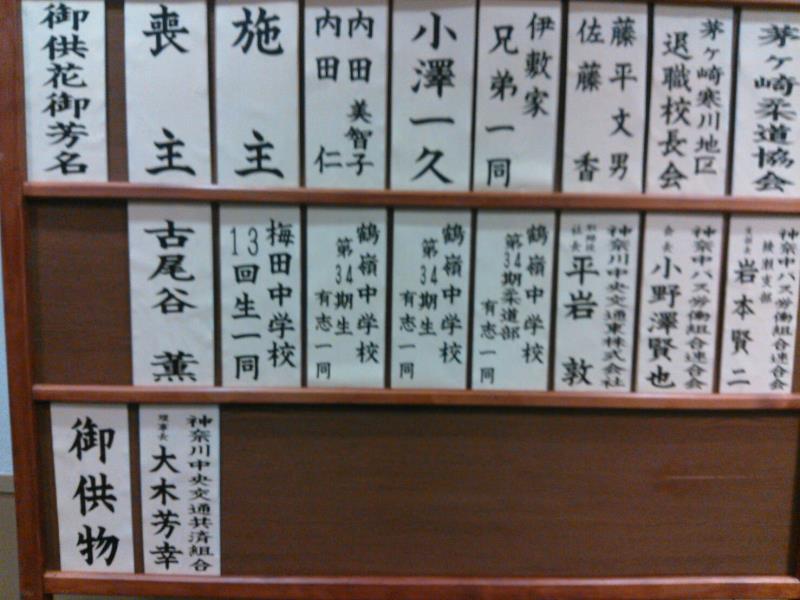 御供花御芳名
喪主
施主
内田美智子
内田仁
小澤一久
伊敷家
兄弟一同
藤平文男
佐藤香
茅ヶ崎寒川地区
退職校長会
茅ヶ崎柔道協会
古尾谷薫
梅田中学校
13回生一同
鶴嶺中学校
第34期生
有志一同
鶴嶺中学校
第34期生
有志一同
鶴嶺中学校
第34期柔道部
有志一同
神奈川中央交通東株式会社
取締役
社長 平岩敦
神奈中バス労働組合連合会
会長 小野澤賢也
神奈中バス労働組合連合会
綾瀬支部
支部長 岩本賢二
御供物
神奈川中央交通共済組合
理事長 大木芳幸